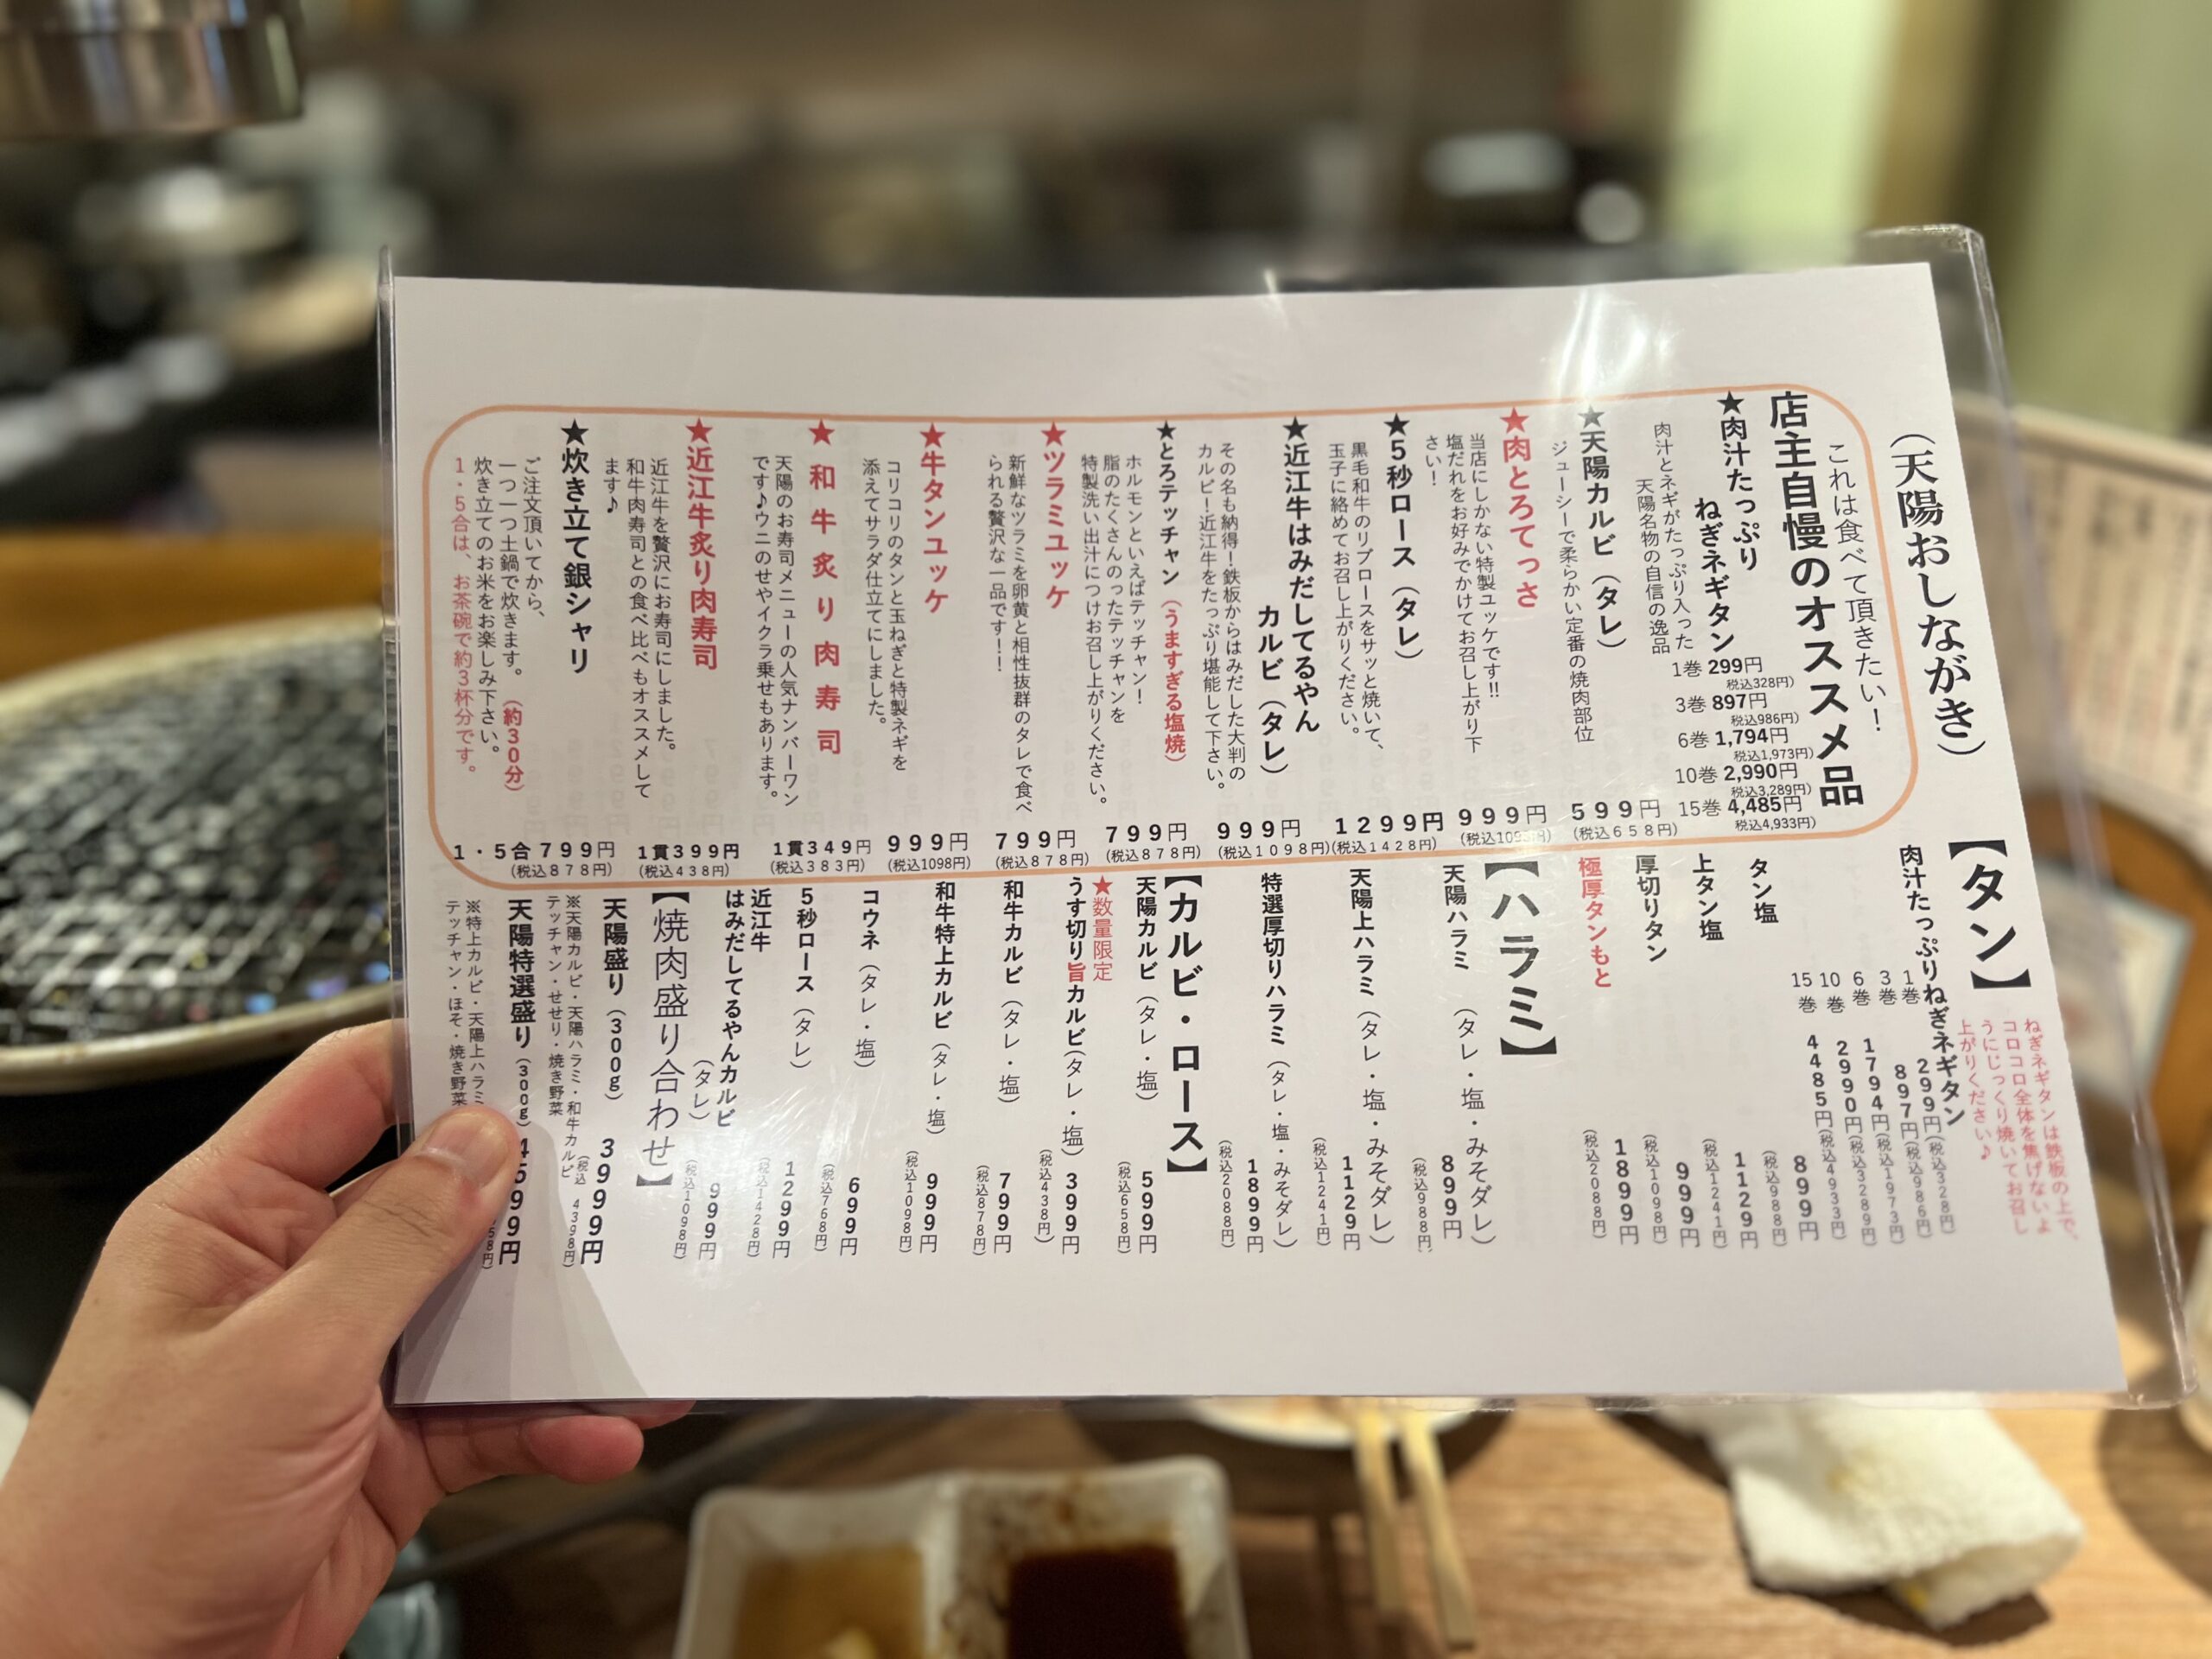 （天陽おしながき）
これは食べて頂きたい！
店主自慢のオススメ品
★肉汁たっぷり
ねぎネギタン
肉汁とネギがたっぷり入った
天陽名物の自信の逸品
1巻 299円
税込328円）
3巻 897円
税込986円）
6巻 1,794円
税込1,973円）
10巻 2,990円
税込3,289円）
15巻 4,485円
税込4,933円）
★天陽カルビ（タレ）
ジューシーで柔らかい定番の焼肉部位
599円
（税込658円）
★肉とろてっさ
当店にしかない特製ユッケです!!
塩だれをお好みでかけてお召し上がり下
さい！
999円
★5秒ロース（タレ）
黒毛和牛のリブロースをサッと焼いて、
玉子に絡めてお召し上がりください。
1299円
（税込1428円）
★近江牛はみだしてるやん
カルビ（タレ）
その名も納得！鉄板からはみだした大判の
カルビ！近江牛をたっぷり堪能して下さい。
999円
（税込1098円）
★とろテッチャン（うますぎる塩焼）
ホルモンといえばテッチャン！
脂のたくさんのったテッチャンを
特製洗い出汁につけお召し上がりください。
799円
（税込878円）
★ツラミユッケ
新鮮なツラミを卵黄と相性抜群のタレで食べ
られる贅沢な一品です!!
799円
（税込878円）
★牛タンユッケ
コリコリのタンと玉ねぎと特製ネギを
添えてサラダ仕立てにしました。
999円
（税込1098円）
★和牛炙り肉寿司
天陽のお寿司メニューの人気ナンバーワン
です♪ウニのせやイクラ乗せもあります。
1貫349円
（税込383円）
★近江牛炙り肉寿司
近江牛を贅沢にお寿司にしました。
和牛肉寿司との食べ比べもオススメして
ます♪
1貫399円
（税込438円）
★炊き立て銀シャリ
ご注文頂いてから、
一つ一つ土鍋で炊きます。（約30分）
炊き立てのお米をお楽しみ下さい。
1・5合は、お茶碗で約3杯分です。
1・5合 799円
（税込878円）
【タン】
ねぎネギタンは鉄板の上で、
コロコロ全体を焦げないよ
うにじっくり焼いてお召し
上がりください♪
肉汁たっぷりねぎネギタン
1巻 299円（税込328円）
3巻 897円（税込986円）
6巻 1794円（税込1973円）
10巻 2990円（税込3289円）
15巻 4485円（税込4933円）
タン塩 899円
（税込988円）
上タン塩 1129円
（税込1241円）
厚切りタン 999円
（税込1098円）
極厚タンもと 1899円
（税込2088円）
【ハラミ】
天陽ハラミ（タレ・塩・みそダレ）
899円
（税込988円）
天陽上ハラミ（タレ・塩・みそダレ）
1129円
（税込1241円）
特選厚切りハラミ（タレ・塩・みそダレ）
1899円
（税込2088円）
【カルビ・ロース】
天陽カルビ（タレ・塩） 599円
（税込658円）
★数量限定
うす切り旨カルビ（タレ・塩） 399円
（税込438円）
和牛カルビ（タレ・塩） 799円
（税込878円）
和牛特上カルビ（タレ・塩） 999円
（税込1098円）
コウネ（タレ・塩） 699円
（税込768円）
5秒ロース（タレ） 1299円
（税込1428円）
近江牛
はみだしてるやんカルビ
（タレ） 999円
（税込1098円）
【焼肉盛り合わせ】
天陽盛り（300g） 3999円
（税込 4398円）
※天陽カルビ・天陽ハラミ・和牛カルビ
テッチャン・せせり・焼き野菜
天陽特選盛り（300g） 4599円
58円）
※特上カルビ・天陽上ハラミ
テッチャン・ほそ・焼き野菜